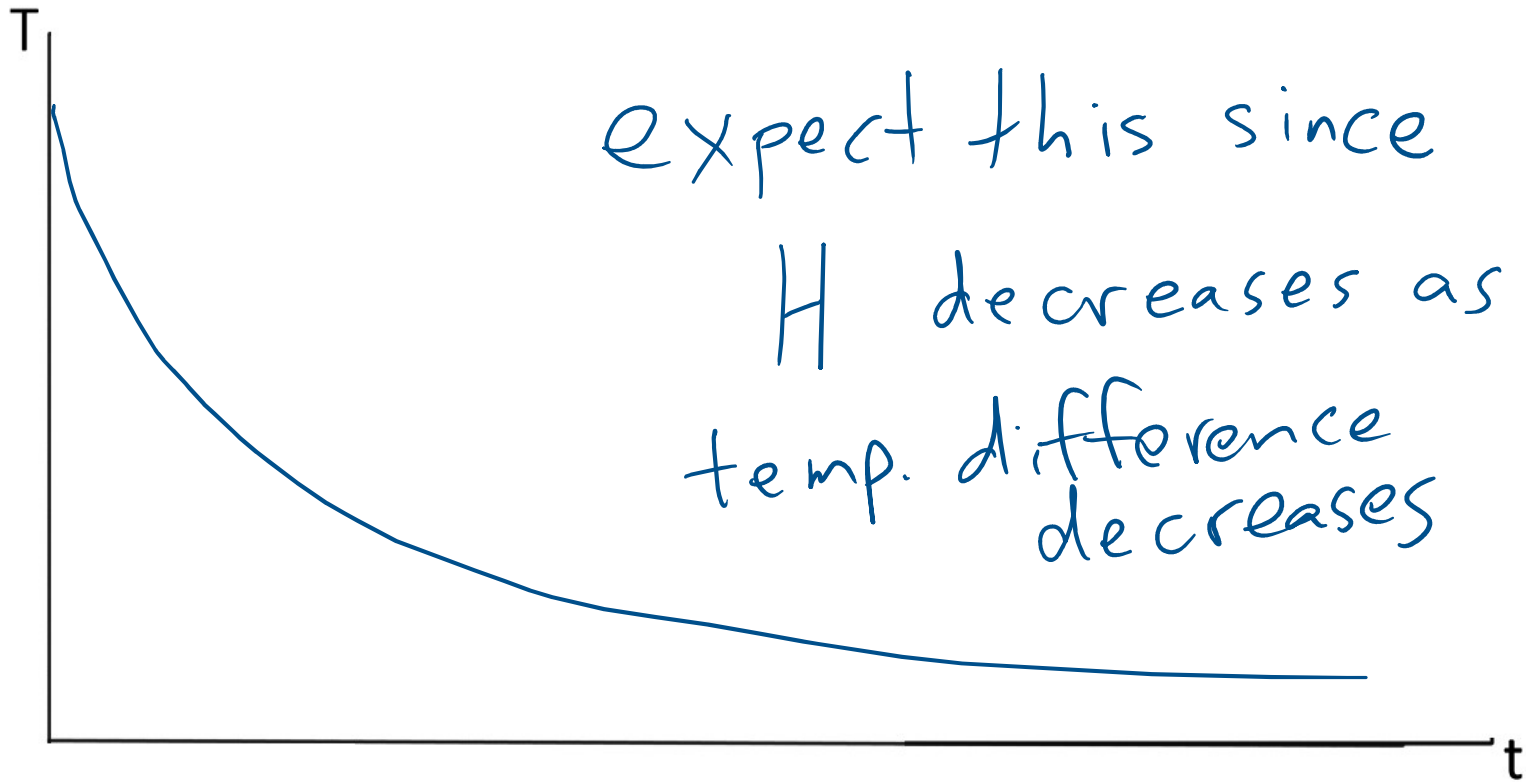 T
expect this since
H decreases as
temp. difference
decreases
t